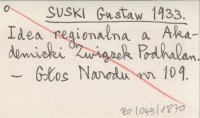 SUSKI Gustaw 1933.
Idea regionalna a Aka-
demicki Związek Podhalan.
– Głos Narodu nr 109.
BJ/049/1870